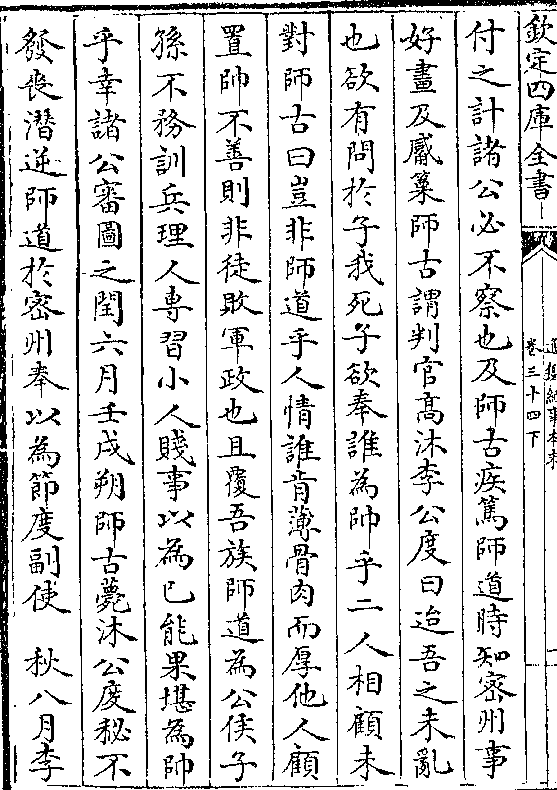 欽定四庫全書
通鑑紀事本末
卷三十四下
付之計諸公必不察也及師古疾篤師道時知密州事
好畫及觱篥師古謂判官髙沐李公度曰迨吾之未亂
也欲有問於子我死子欲奉誰為帥乎二人相顧未
對師古曰豈非師道乎人情誰肯薄骨肉而厚他人顧
置帥不善則非徒敗軍政也且覆吾族師道為公侯子
孫不務訓兵理人專習小人賤事以為已能果堪為帥
乎幸諸公審圖之閏六月壬戌朔師古薨沐公度秘不
發喪潛逆師道於密州奉以為節度副使　秋八月李